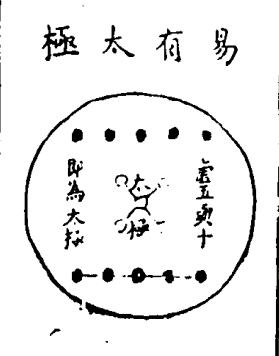 易有太極
虛五與十
太極
即為太極